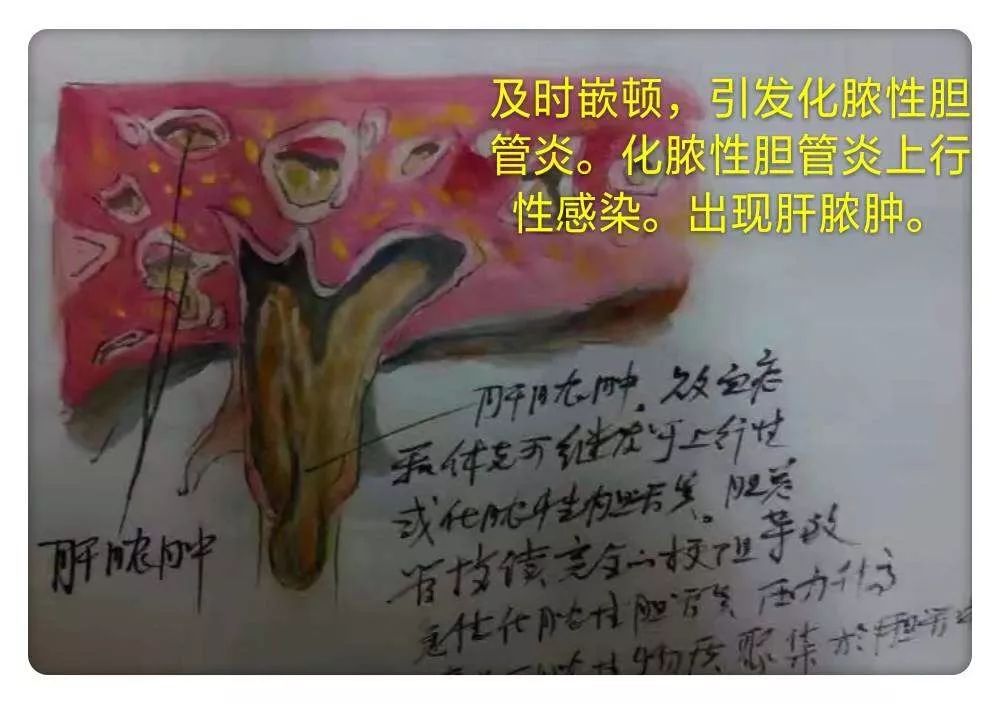 及时嵌顿，引发化脓性胆
管炎。化脓性胆管炎上行
性感染。出现肝脓肿。
肝脓肿、败血症
和休克可继发于上行性
或化脓性胆管炎。胆总
管持续完全的梗阻导致
急性化脓性胆管炎 压力升高
物质聚集於胆管
肝脓肿